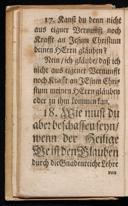 17. Kanſt du denn nicht
aus eigner Vernunfft noch
Krafft an JEſum Chriſtum
deinen HErrn gläuben?
Nein / ich gläube / daß ich
nicht aus eigener Vernunfft
noch Krafft an JEſum Chri-
ſtum meinen HErrn gläuben
oder zu ihm kommen kan.
18. Wie muſt du
aber beſchaffen ſeyn /
wenn der Heilige
Geiſt den Glauben
durch die Gnadenreiche Lehre
von